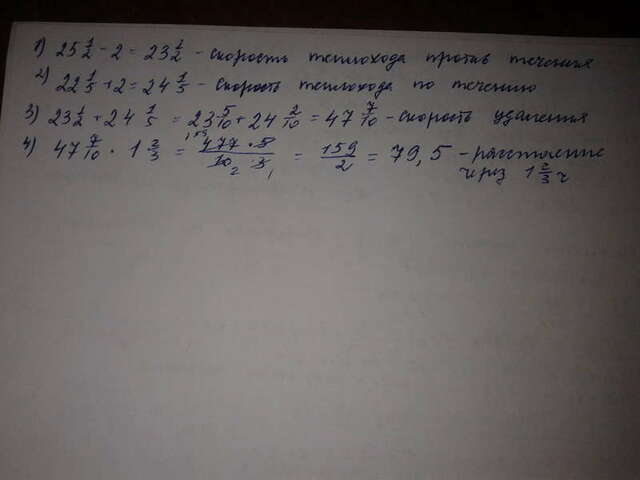 1) 25 1/2 - 2 = 23 1/2 - скорость теплохода против течения
2) 22 1/5 + 2 = 24 1/5 - скорость теплохода по течению
3) 23 1/2 + 24 1/5 = 23 5/10 + 24 2/10 = 47 7/10 - скорость удаления
4) 47 7/10 · 1 2/3 = 159 477 · 5 1 / 10 2 · 3 1 = 159/2 = 79,5 - расстояние
через 1 2/3 ч